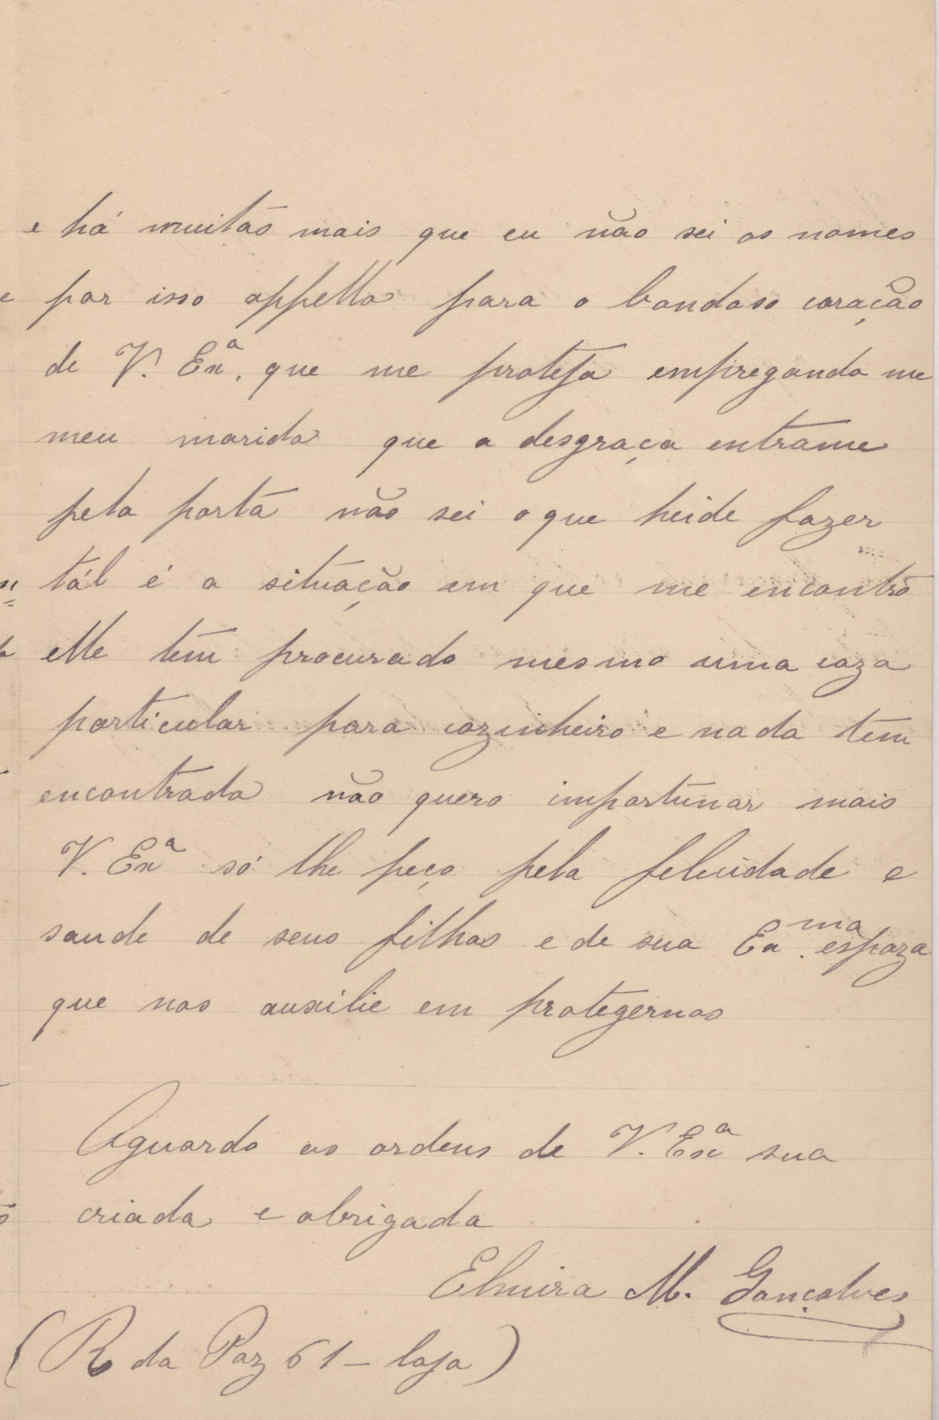 e há muitas mais que eu não sei os nomes
por isso appello para o bondoso coração
de V. Exª. que me proteja empregando me
meu marido que a desgraça entrame
pela porta não sei o que heide fazer
tál é a situação em que me encontro
elle tem procurado mesmo uma caza
particular para cozinheiro e nada tem
encontrado não quero importunar mais
V. Exª só lhe peço pela felicidade e
saude de seus filhos e de sua Exma. espoza
que nos auxilie em protegernos
Aguardo as ordens de V. Exª sua
criada e obrigada
Elmira M. Gonçalves
(R da Paz 61 - loja)